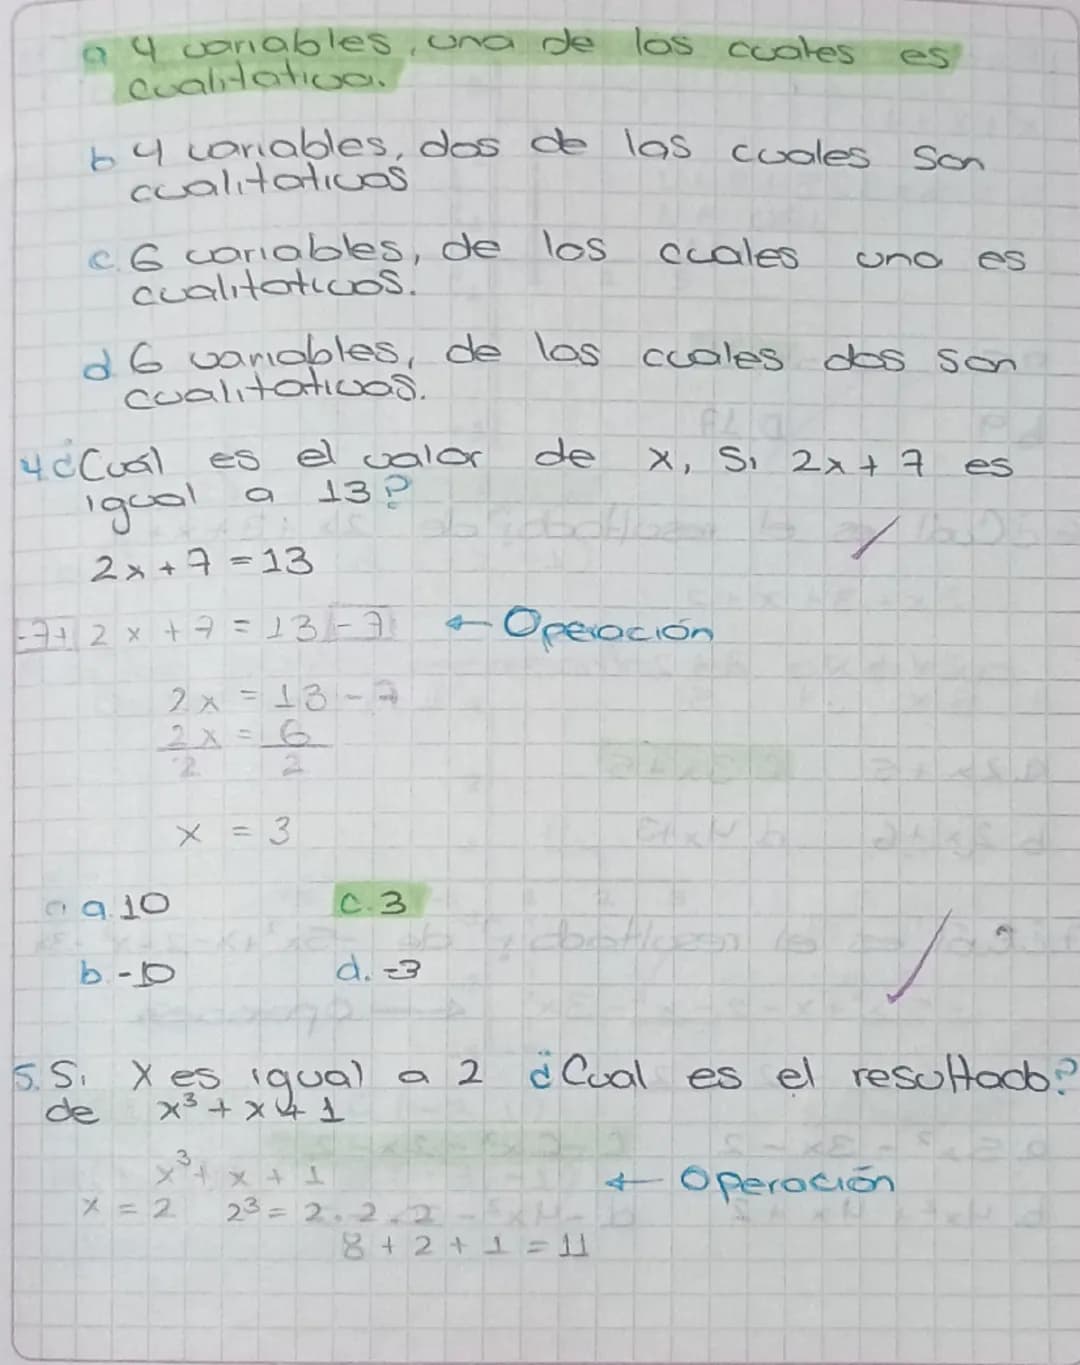 a 4 variables, una de las cuales es
cualitativa.
b 4 variables, dos de las cuales son
cualitativas
c. 6 variables, de las cuales una es
cualitativas.
d 6 variables, de las cuales dos son
cualitativas.
4 ¿Cuál es el valor de x, Si 2x + 7 es
igual a 13?
2x + 7 = 13
-7+ 2x + 7 = 13 - 7 ← Operación
2x = 13 - 7
2x = 6
2 2
x = 3
a. 10 c. 3
b. -10 d. -3
5. Si X es igual a 2 ¿Cual es el resultado?
de x³ + x + 1
x³ + x + 1
← Operación
x = 2 2³ = 2 . 2 . 2
8 + 2 + 1 = 11